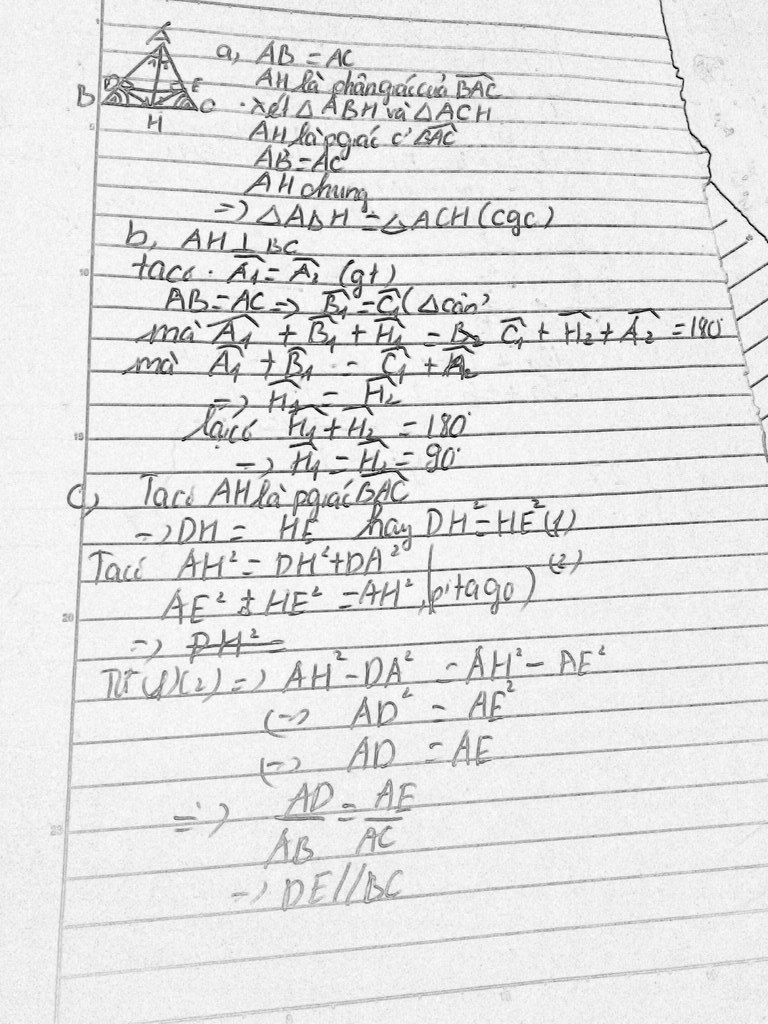 A
D E
B C
H
a, AB = AC
AH là phân giác của BAC
Xét △ ABH và △ ACH
AH là pgiác c' BAC
AB = AC
AH chung
=> △ABH = △ACH (cgc)
b, AH ⊥ BC
ta có A1 = A2 (gt)
AB = AC => B1 = C1 (△ cân)
mà A1 + B1 + H1 = B2 C1 + H2 + A2 = 180°
mà A1 + B1 = C1 + A2
=> H1 = H2
lại có H1 + H2 = 180°
=> H1 = H2 = 90°
c, Ta có AH là pgiác BAC
=> DH = HE hay DH² = HE² (1)
Ta có AH² = DH² + DA²
AE² + HE² = AH² (pitago) (2)
=> DH² =
Từ (1)(2) => AH² - DA² = AH² - AE²
(=> AD² = AE²
(=> AD = AE
=> AD/AB = AE/AC
=> DE//BC